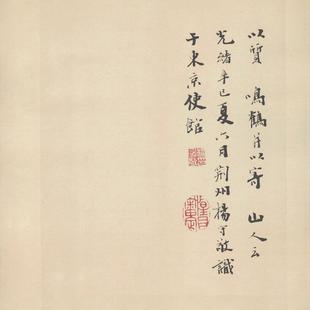 以質　鳴鶴并以寄　山人云
光緒辛巳夏六月荆州楊守敬識
于東京使館